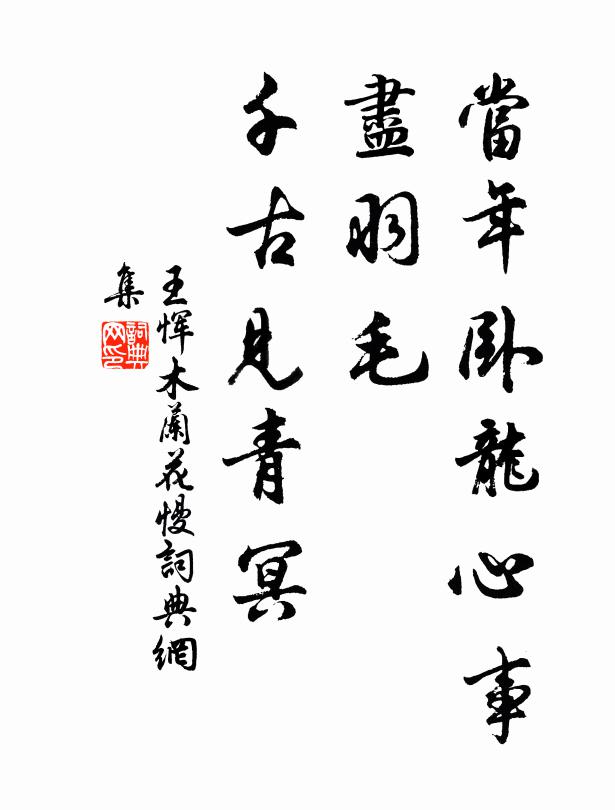 當年卧龍心事
盡羽毛
千古見青冥
王惲木蘭花慢詞典網
集
詞典网印